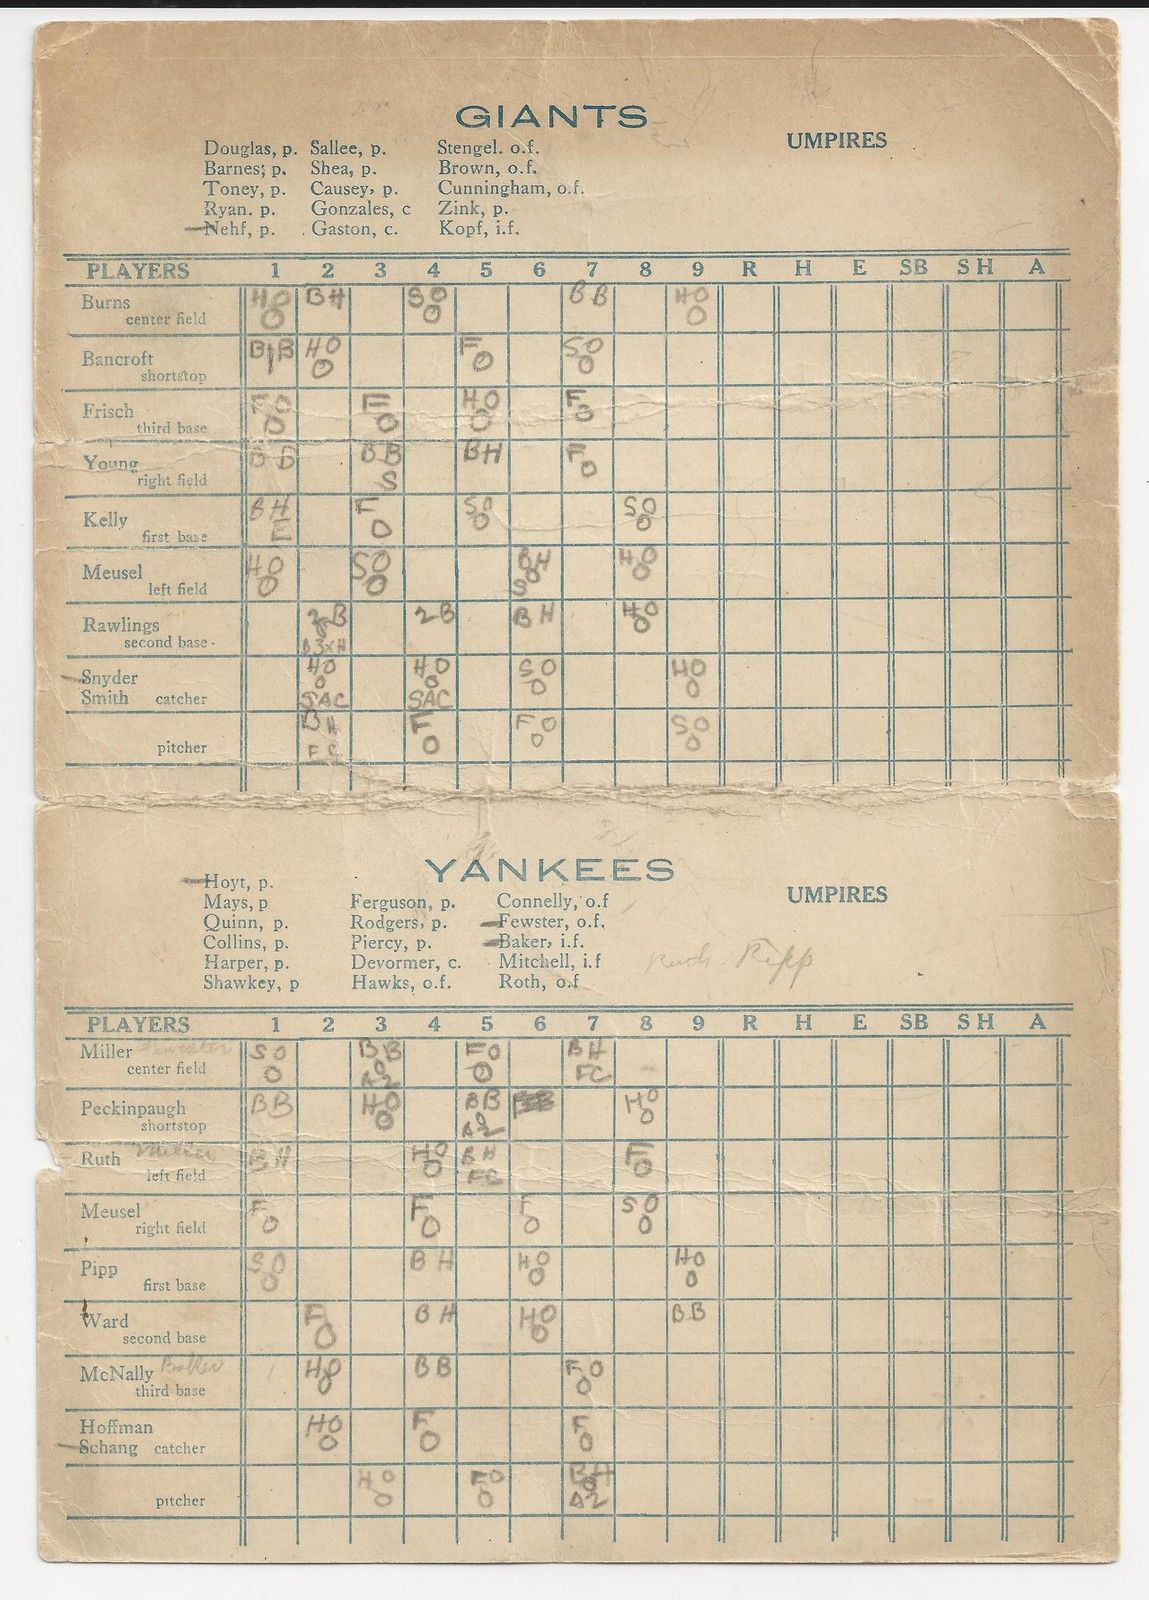 GIANTS
UMPIRES
Douglas, p. Sallee, p. Stengel. o.f.
Barnes; p. Shea, p. Brown, o.f.
Toney, p. Causey, p. Cunningham, o.f.
Ryan. p. Gonzales, c Zink, p.
Nehf, p. Gaston, c. Kopf, i.f.
PLAYERS 1 2 3 4 5 6 7 8 9 R H E SB SH A
Burns HO BH SO BB HO
center field O O O
Bancroft BB HO F SO
shortstop 1 O O O
Frisch FO F HO F
third base O O O O
Young BB BB BH F
right field S O
Kelly BH F SO SO
first base E O O O
Meusel HO SO BH HO
left field O O O S O
Rawlings 2B 2B BH HO
second base O
Snyder HO HO SO HO
O O O O
Smith catcher SAC SAC
BH F FO SO
pitcher FC O O O
YANKEES
UMPIRES
Hoyt, p.
Mays, p Ferguson, p. Connelly, o.f
Quinn, p. Rodgers, p. Fewster, o.f.
Collins, p. Piercy, p. Baker, i.f.
Harper, p. Devormer, c. Mitchell, i.f Pipp
Shawkey, p Hawks, o.f. Roth, o.f
PLAYERS 1 2 3 4 5 6 7 8 9 R H E SB SH A
Miller Fewster SO BB FO BH
center field O O A2 O FC
Peckinpaugh BB HO BB HO
shortstop O O A2 O
Ruth Miller BH HO BH F
left field O FC O
Meusel F F F SO
right field O O O O
Pipp SO BH HO HO
first base O O O
Ward F BH HO BB
second base O O
McNally Baker HO BB FO
third base O O
Hoffman HO F F
Schang catcher O O O
HO FO BH
pitcher O O O A2